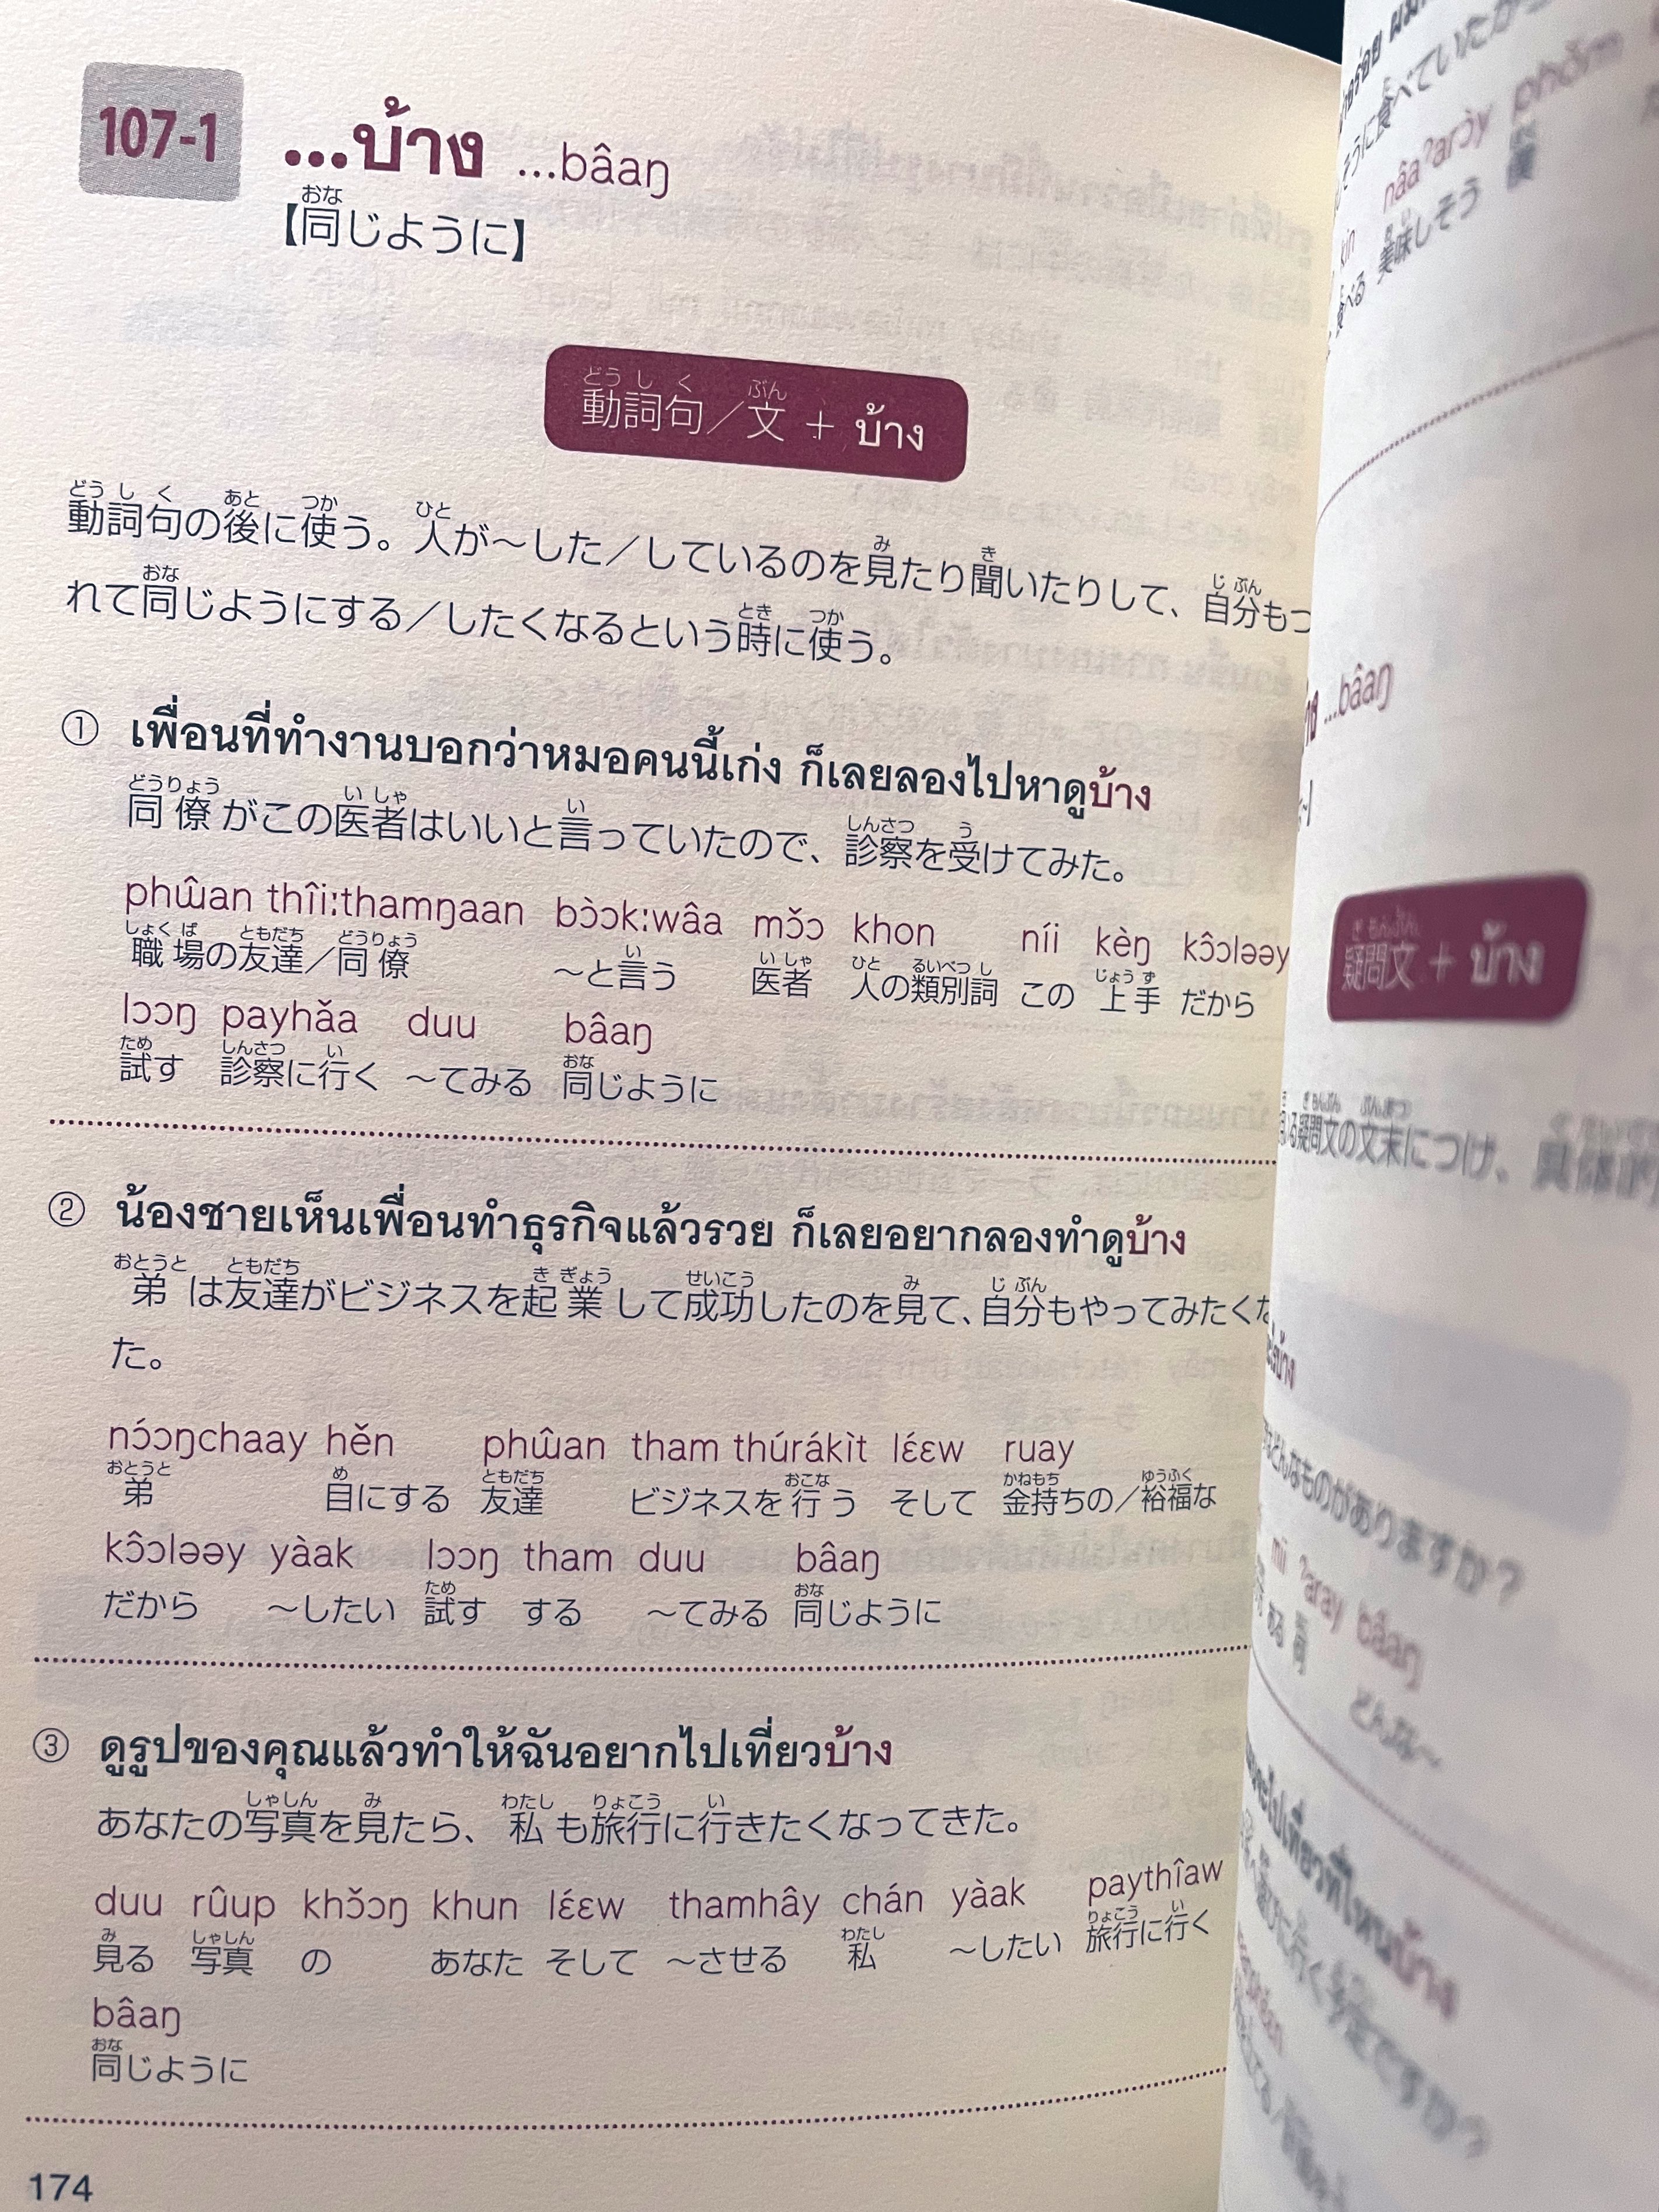 107-1
...บ้าง ...bâaŋ
【同じように】
動詞句／文 + บ้าง
動詞句の後に使う。人が〜した／しているのを見たり聞いたりして、自分もつ
れて同じようにする／したくなるという時に使う。
① เพื่อนที่ทำงานบอกว่าหมอคนนี้เก่ง ก็เลยลองไปหาดูบ้าง
同僚がこの医者はいいと言っていたので、診察を受けてみた。
phɯ̂an thîi:thamŋaan bɔ̀ɔk:wâa mɔ̌ɔ khon níi kèŋ kɔ̂ɔləəy
職場の友達／同僚 〜と言う 医者 人の類別詞 この 上手 だから
lɔɔŋ payhǎa duu bâaŋ
試す 診察に行く 〜てみる 同じように
② น้องชายเห็นเพื่อนทำธุรกิจแล้วรวย ก็เลยอยากลองทำดูบ้าง
弟は友達がビジネスを起業して成功したのを見て、自分もやってみたくな
た。
nɔ́ɔŋchaay hěn phɯ̂an tham thúrákìt lɛ́ɛw ruay
弟 目にする 友達 ビジネスを行う そして 金持ちの／裕福な
kɔ̂ɔləəy yàak lɔɔŋ tham duu bâaŋ
だから 〜したい 試す する 〜てみる 同じように
③ ดูรูปของคุณแล้วทำให้ฉันอยากไปเที่ยวบ้าง
あなたの写真を見たら、私も旅行に行きたくなってきた。
duu rûup khɔ̌ɔŋ khun lɛ́ɛw thamhây chán yàak paythîaw
見る 写真 の あなた そして 〜させる 私 〜したい 旅行に行く
bâaŋ
同じように
174
べていたか
nâaʔarɔ̀y phǒm
kin
食べる 美味しそう 僕
...bâaŋ
疑問文 + บ้าง
る疑問文の文末につけ、具体的
บ้าง
どんなものがありますか？
mii ʔaray bâaŋ
ある 何 どんな〜
ไปเที่ยวที่ไหนบ้าง
に行く予定ですか？